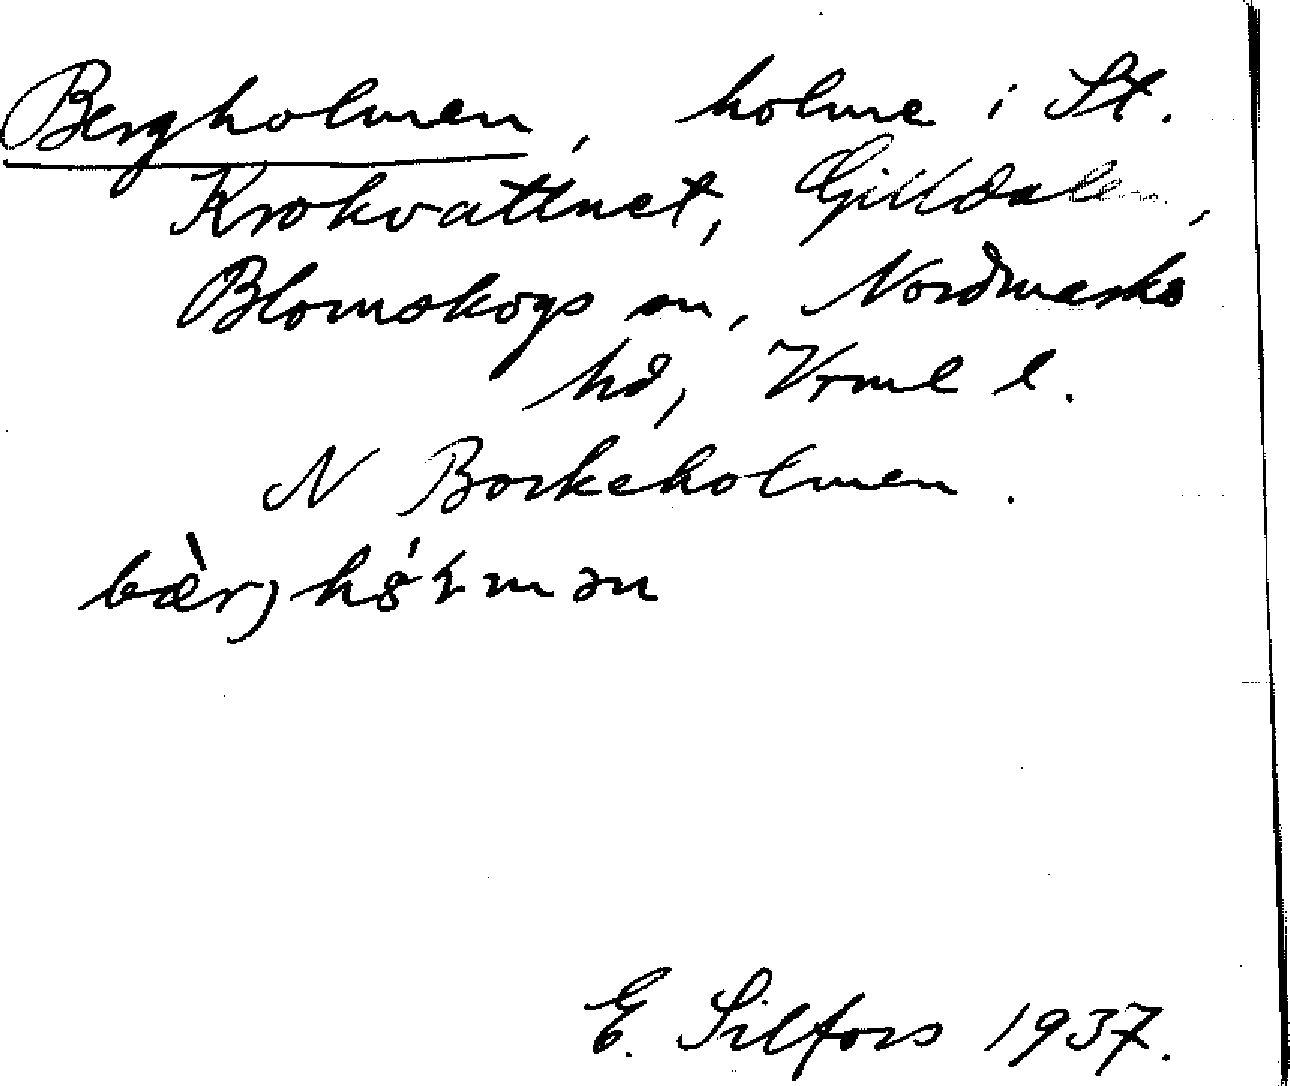 Bergholmen, holme i St.
Krokvattnet, Gilldalen,
Blomskogs sn, Nordmarks
hd, Vrml l.
N Borkeholmen.
bæ̀rjhólmən
E. Silfors 1937.